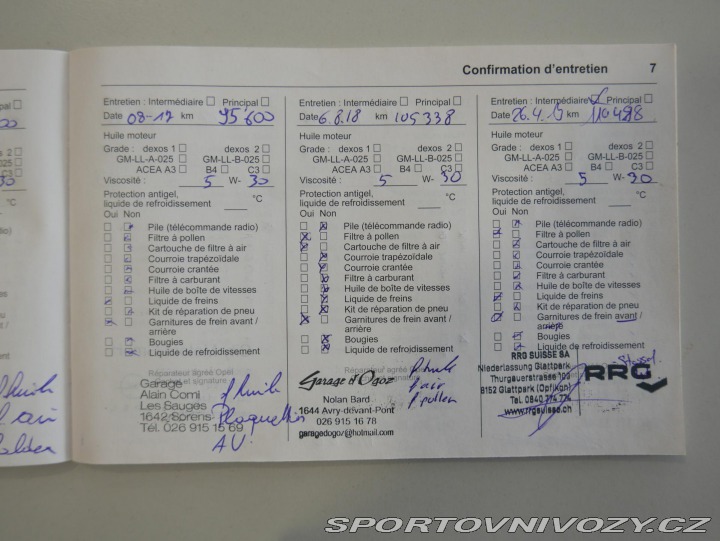 Confirmation d'entretien 7
Entretien : Intermédiaire Principal
Date 08-17 km 95'600
Huile moteur
Grade : dexos 1 dexos 2
GM-LL-A-025 GM-LL-B-025
ACEA A3 B4 C3
Viscosité : 5 W- 30
Protection antigel,
liquide de refroidissement °C
Oui Non
Pile (télécommande radio)
Filtre à pollen
Cartouche de filtre à air
Courroie trapézoïdale
Courroie crantée
Filtre à carburant
Huile de boîte de vitesses
Liquide de freins
Kit de réparation de pneu
Garnitures de frein avant /
arrière
Bougies
Liquide de refroidissement
Réparateur agréé Opel
Garage
Alain Comi
Les Sauges
1642 Sorens
Tél. 026 915 15 69
f huile
Plaquettes
AV!
Entretien : Intermédiaire Principal
Date 6.8.18 km 105338
Huile moteur
Grade : dexos 1 dexos 2
GM-LL-A-025 GM-LL-B-025
ACEA A3 B4 C3
Viscosité : 5 W- 30
Protection antigel,
liquide de refroidissement °C
Oui Non
Pile (télécommande radio)
Filtre à pollen
Cartouche de filtre à air
Courroie trapézoïdale
Courroie crantée
Filtre à carburant
Huile de boîte de vitesses
Liquide de freins
Kit de réparation de pneu
Garnitures de frein avant /
arrière
Bougies
Liquide de refroidissement
Garage d'Ogoz
Nolan Bard
1644 Avry-devant-Pont
026 915 16 78
garagedogoz@hotmail.com
f huile
f air
f pollen
Entretien : Intermédiaire Principal
Date 26.4.19 km
Huile moteur
Grade : dexos 1 dexos 2
GM-LL-A-025 GM-LL-B-025
ACEA A3 B4 C3
Viscosité : 5 W- 30
Protection antigel,
liquide de refroidissement °C
Oui Non
Pile (télécommande radio)
Filtre à pollen
Cartouche de filtre à air
Courroie trapézoïdale
Courroie crantée
Filtre à carburant
Huile de boîte de vitesses
Liquide de freins
Kit de réparation de pneu
Garnitures de frein avant /
arrière
Bougies
Liquide de refroidissement
RRG SUISSE SA
Niederlassung Glattpark
Thurgauerstrasse 103
8152 Glattpark (Opfikon)
Tel. 0840 774 774
www.rrgsuisse.ch
RRG
SPORTOVNIVOZY.CZ